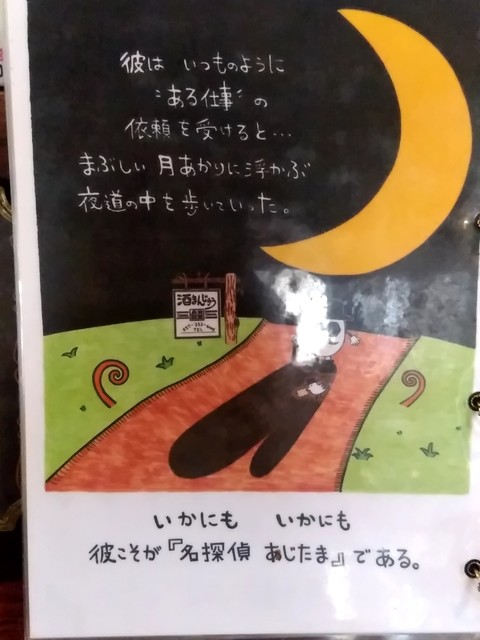 彼は いつものように
"ある仕事"の
依頼を受けると…
まぶしい 月あかりに浮かぶ
夜道の中を歩いていった。
酒まんじゅう
TEL
いかにも いかにも
彼こそが『名探偵 あじたま』である。